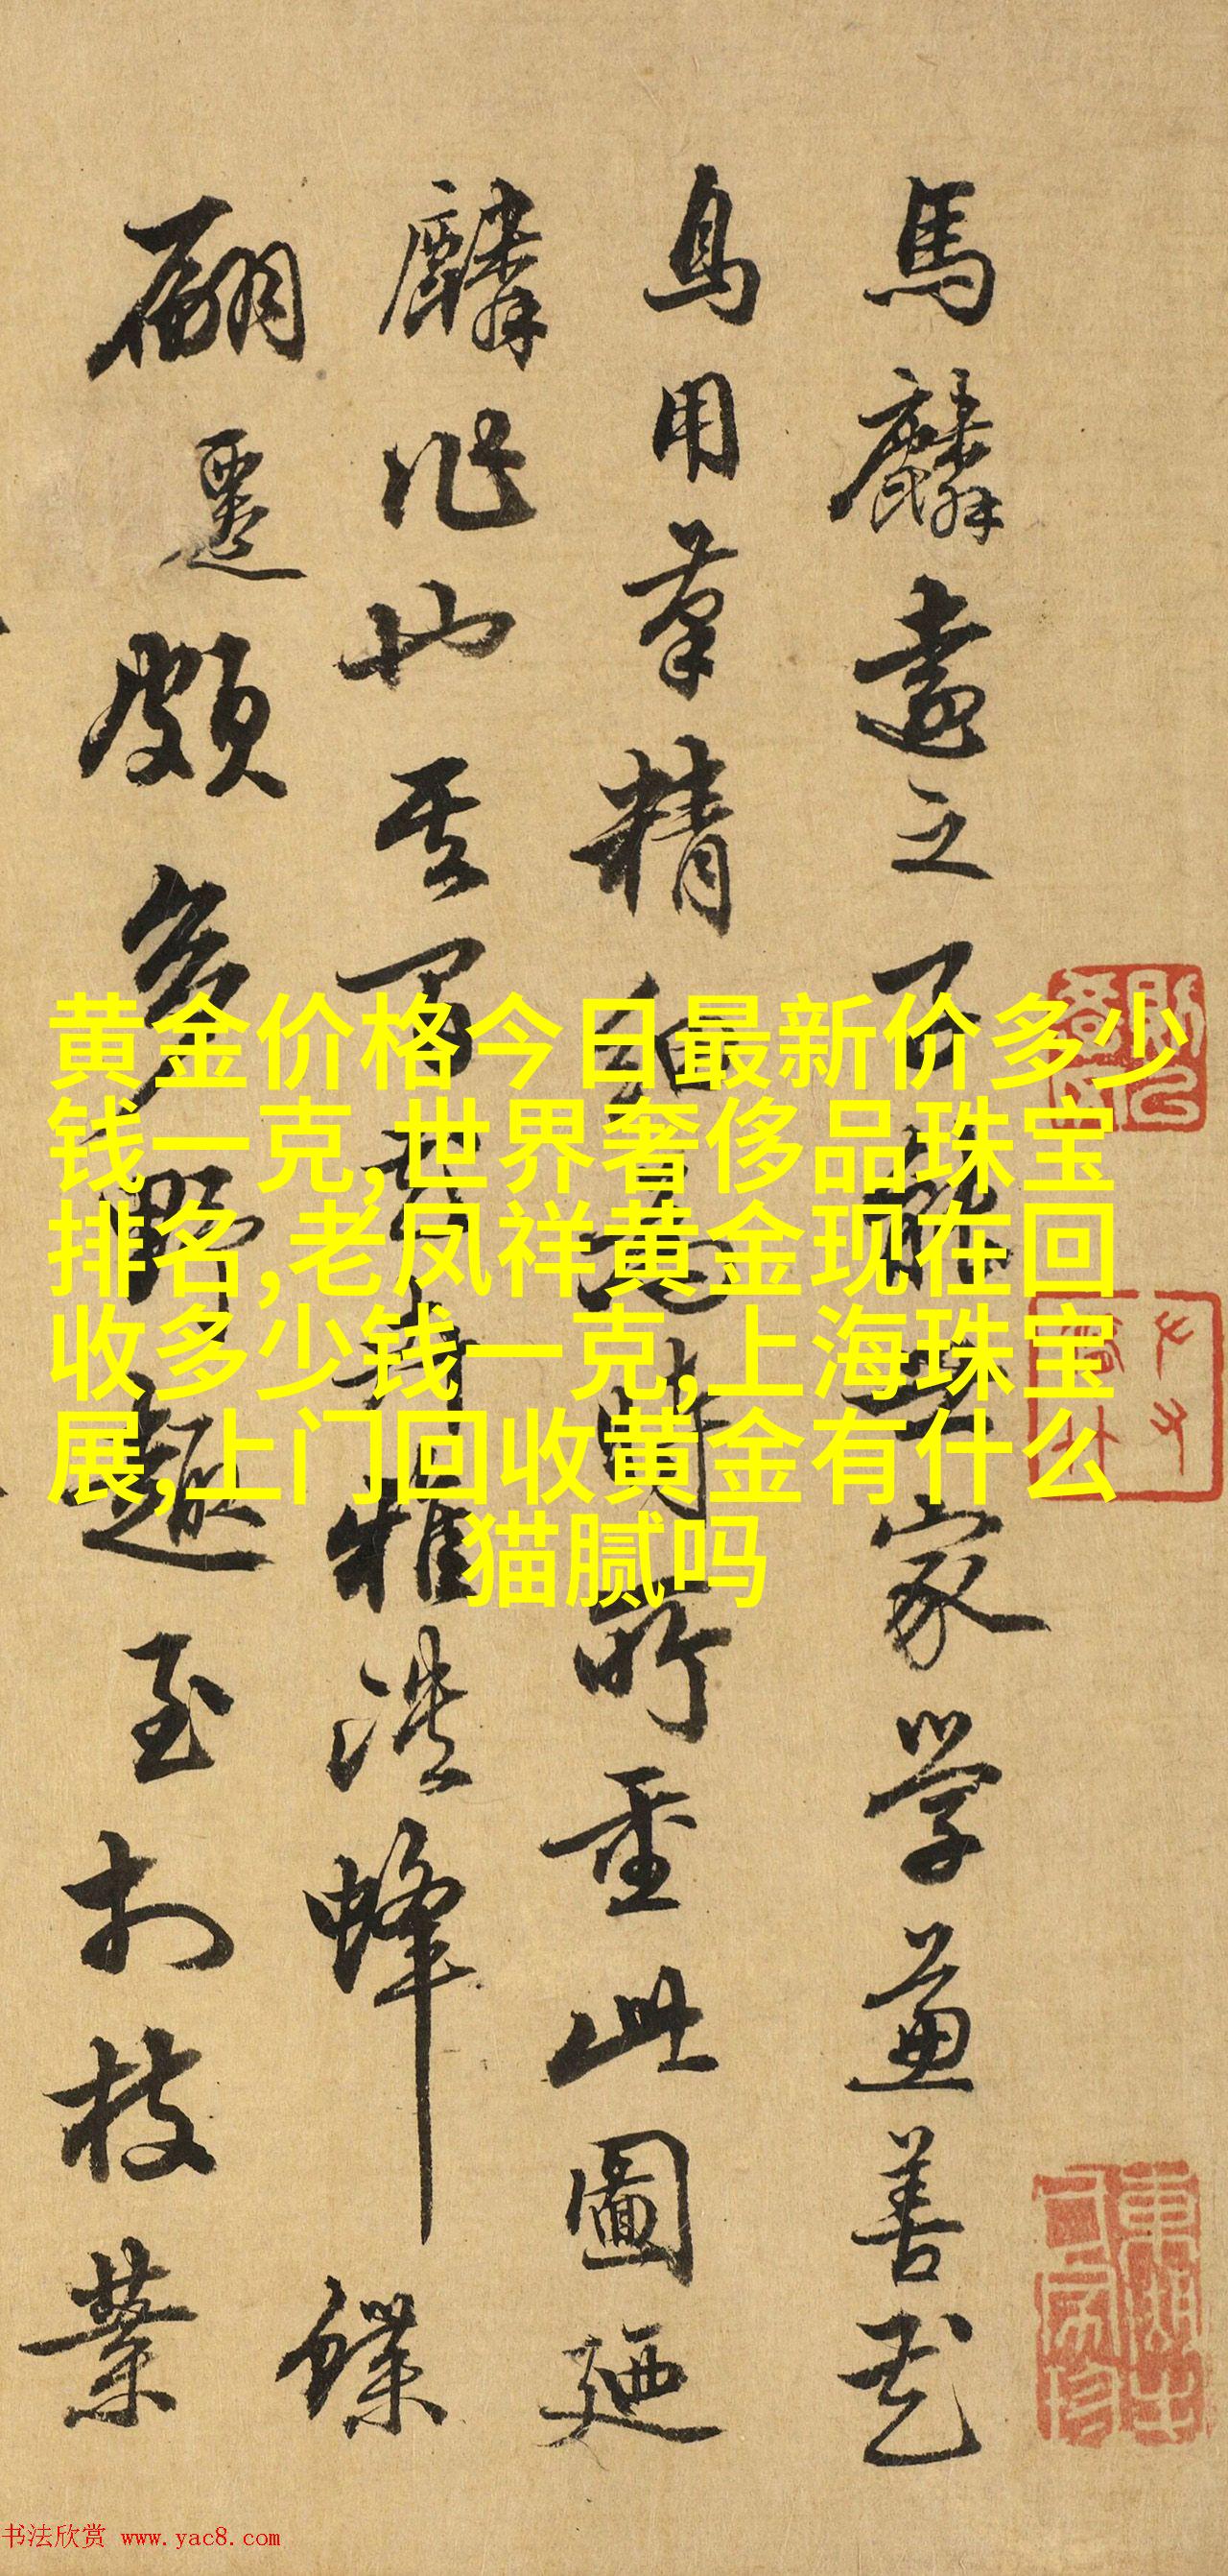 馬麟遠之子能世家學兼善花
鳥用筆精細為時所重此圖廼
麟作也其間雅淡蜂蝶
翩頗多野趣至於枝葉
黄金价格今日最新价多少
钱一克,世界奢侈品珠宝
排名,老凤祥黄金现在回
收多少钱一克,上海珠宝
展,上门回收黄金有什么
猫腻吗
书法欣赏 www.yac8.com